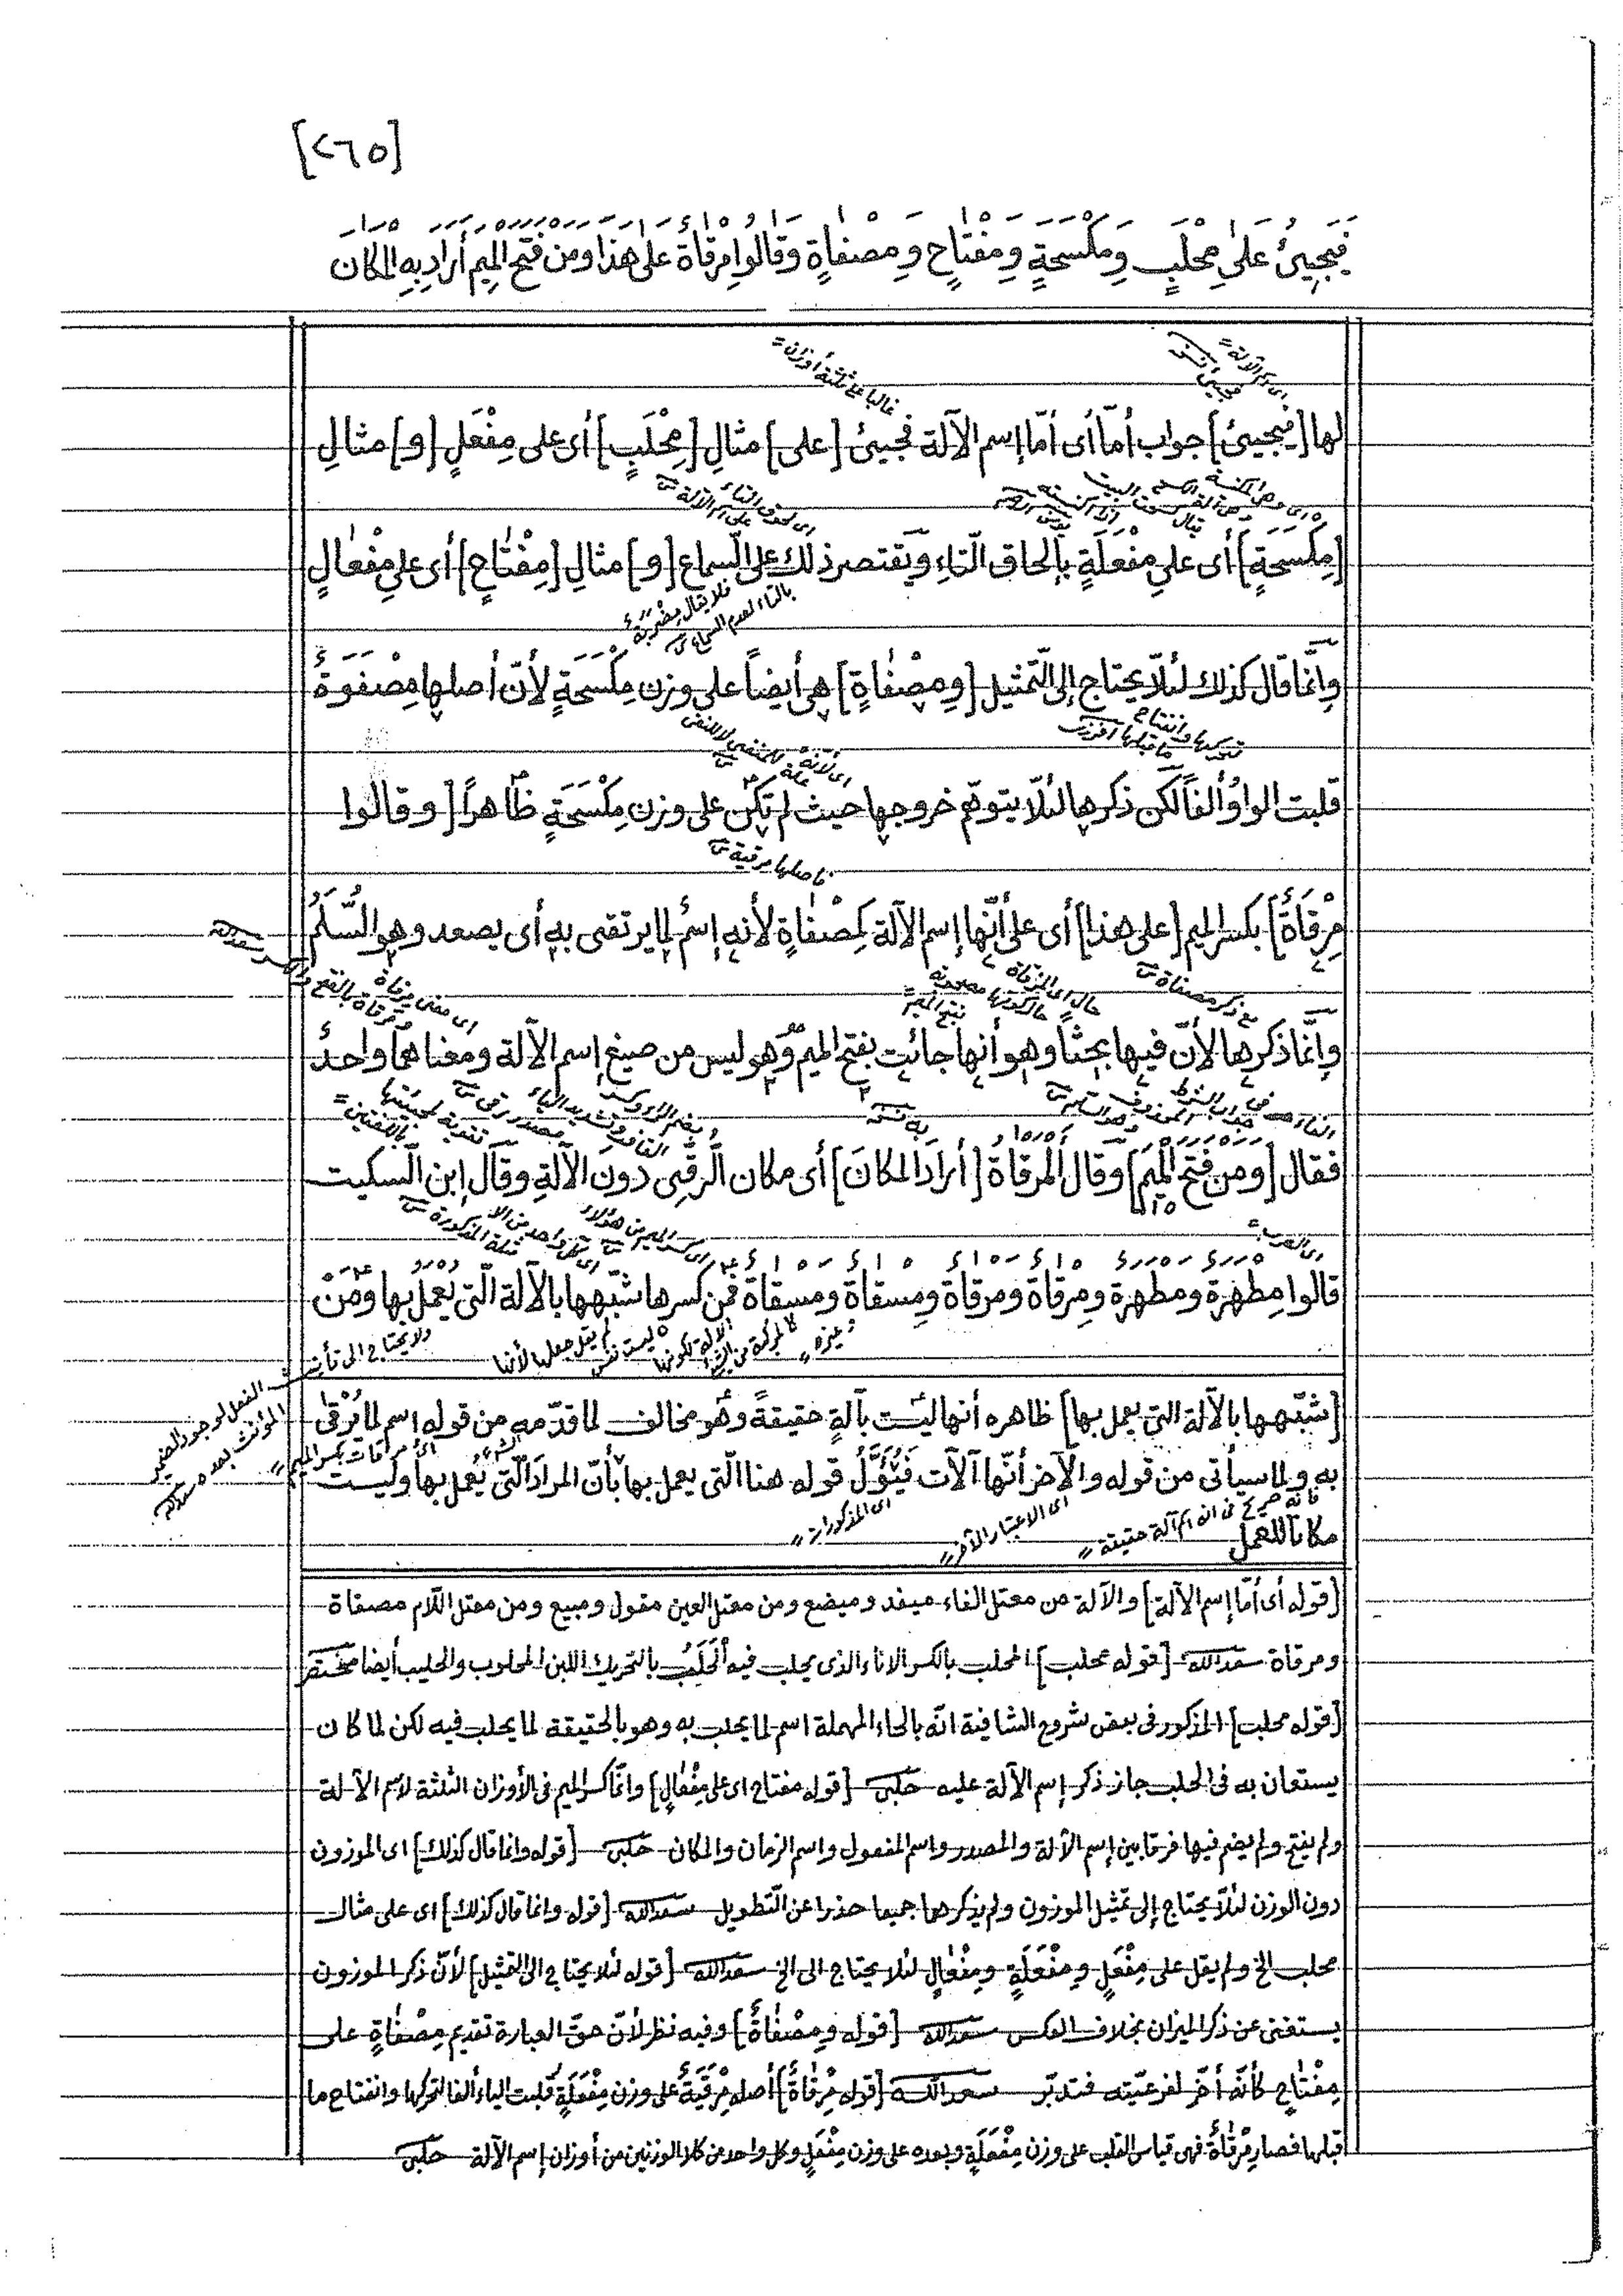 [٢٦٥]
فَيَجِيئُ عَلىٰ مِحْلَبٍ وَمِكْسَحَةٍ وَمِفْتَاحٍ وَمِصْفَاةٍ وَقَالُوا مِرْقَاةٌ عَلىٰ هٰذَا وَمَنْ فَتَحَ الْمِيمَ أَرَادَ بِهِ الْمَكَانَ
اى اسم الآلة
غالبا على ثلثة أوزان
لها [فيجيئ] جواب أمّا أى أمّا إسم الآلة فيجيئ [على] مثالِ [مِحْلَبٍ] أى على مِفْعَلٍ [و] مثالِ
اى لحوق التاء على اسم الآلة
[مِكْسَحَةٍ] أى على مِفْعَلَةٍ بإلحاق التّاءِ ويقتصر ذلك على السّماع [و] مثالِ [مِفْتَاحٍ] أى على مِفْعَالٍ
فلا يقال مِضْرَبَة بالتاء لعدم السماع
وإنّما قال كذلك لئلّا يحتاج إلى التّمثيل [ومِصْفَاةٍ] هى أيضاً على وزن مِكْسَحَةٍ لأنّ أصلها مِصْفَوَةٌ
تحريكها وانفتاح ما قبلها
قلبت الواو ألفاً لكن ذكرها لئلّا يتوهّم خروجها حيث لم تكن على وزن مِكْسَحَةٍ ظاهراً [وقالوا
فاصلها مرقية
مِرْقَاةٌ] بكسر الميم [على هذا] أى على أنّها إسم الآلة كمِصْفَاةٍ لأنه إسمٌ لما يرتقى به أى يصعد وهو السُّلَّمُ
مع ذكر مصفاة
حال اى المرقاة حال كونها مصحوبة بفتح الميم
اى معنى مِرقاة ومَرقاة بالفتح والكسر سعدالله
وإنّما ذكرها لأنّ فيها بحثا وهو أنها جائت بفتح الميم وهو ليس من صيغ إسم الآلة ومعناهما واحدٌ
به نسخه
فقال [ومَن فَتَحَ الْمِيمَ] وقال الْمَرقاةُ [أرادَ المكانَ] أى مكان الرّقِى دون الآلةِ وقال ابن السّكيت
اى العرب
قالوا مِطهرة ومَطهرة ومِرقاة ومَرقاة ومِسقاة ومَسقاة فمن كسرها شبّهها بالآلة الّتى يُعملُ بها ومَنْ
لم يقل جعلها لأنها ليست نفس الآلة
ولا يحتاج الى تأنيث الفعل لوجود الضمير المؤنث بعده سعدالله
[شبّهها بالآلة التى يعمل بها] ظاهره أنها ليست بآلةٍ حقيقةً وهو مخالف لما قدّمه من قوله اسم لما يُرْقىٰ
به ولما سيأتى من قوله والآخر أنّها آلآت فَيُؤَوَّلُ قوله هنا الّتى يعمل بها بأنّ المرادَ الّتى يُعمل بها وليست
مكاناً للعمل
فانه صريح فى انه اسم آلة حقيقة
اى الاعتبار الآخر
اى المذكورات
[قوله أى أمّا إسم الآلة] والآلة من معتل الفاء ميفد وميضع ومن معتل العين مقول ومبيع ومن معتل اللّام مصفاة
ومرقاة سعدالله [قوله محلب] المحلب بالكسر الاناء الذى يحلب فيه الحَلَبُ بالتحريك اللبن المحلوب والحليب أيضا مختصر
[قوله محلب] المذكور فى بعض شروح الشافية انّه بالحاء المهملة اسم لما يحلب به وهو بالحقيقة لما يحلب فيه لكن لما كان
يستعان به فى الحلب جاز ذكر إسم الآلة عليه حلبى [قوله مفتاح اى على مِفْعَالٍ] وانّما كسر الميم فى الأوزان الثلثة لاسم الآلة
ولم يفتح ولم يضم فيها فرقا بين إسم الآلة والمصدر واسم المفعول واسم الزمان والمكان حلبى [قوله وانما قال كذلك] اى الموزون
دون الوزن لئلّا يحتاج إلى تمثيل الموزون ولم يذكرهما جميعا حذرا عن التّطويل سعدالله [قوله وانما قال كذلك] اى على مثال
محلب الخ ولم يقل على مِفْعَلٍ ومِفْعَلَةٍ ومِفْعَالٍ لئلا يحتاج الى الخ سعدالله [قوله لئلا يحتاج الى التمثيل] لأنّ ذكر الموزون
يستغنى عن ذكر الميزان بخلاف العكس سعدالله [قوله ومِصْفَاةٌ] وفيه نظر لأنّ حقّ العبارة تقديم مِصْفَاةٍ على
مِفْتَاحٍ كأنّه أخّر لفرعيّته فتدبّر سعدالله [قوله مِرْقَاةٌ] أصله مِرْقَيَةٌ على وزن مِفْعَلَةٍ قلبت الياء ألفا لتحركها وانفتاح ما
قبلها فصار مِرْقَاةٌ فهى قياس القلب على وزن مِفْعَلَةٍ وبعده على وزن مِفْعَلٍ وكل واحد من كلا الوزنين من أوزان إسم الآلة حلبى